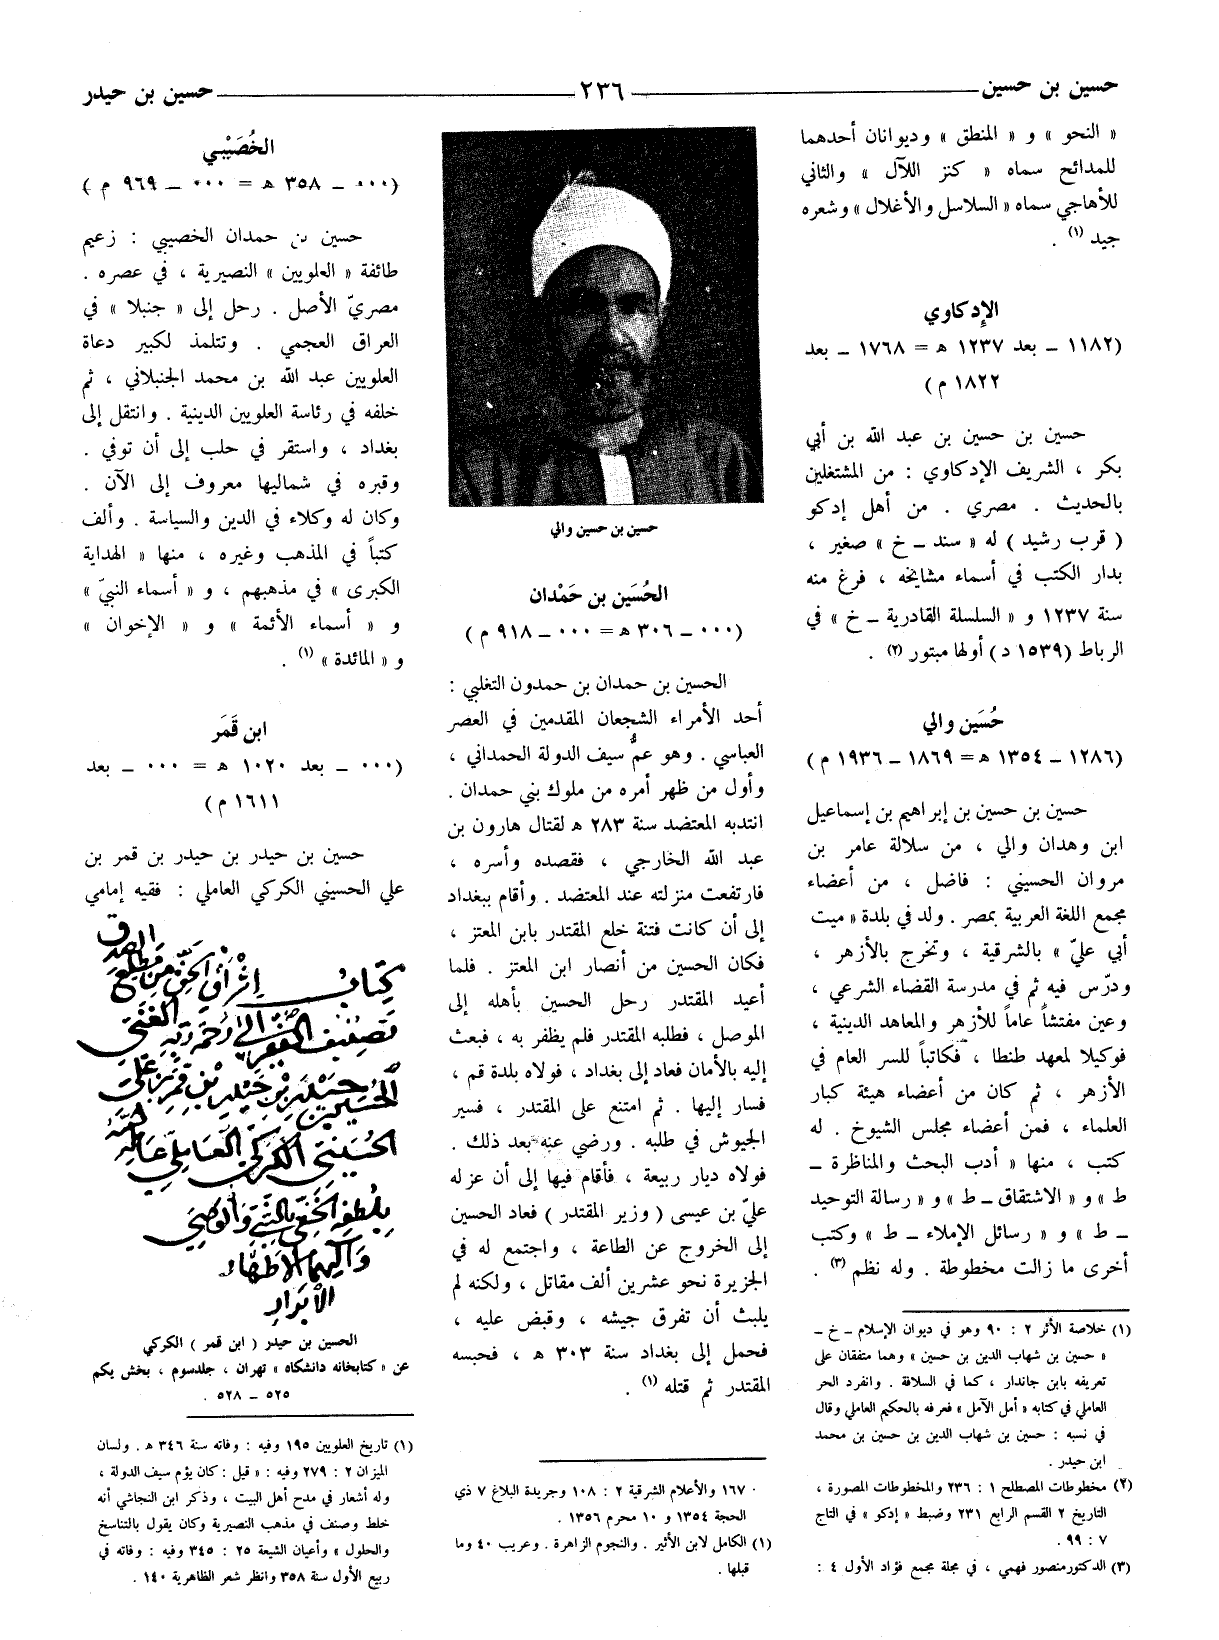 حسين بن حسين ٢٣٦ حسين بن حيدر
« النحو » و « المنطق » وديوانان أحدهما
للمدائح سماه « كنز اللآل » والثاني
للأهاجي سماه « السلاسل والأغلال » وشعره
جيد (١) .
الإدكاوي
(١١٨٢ ـ بعد ١٢٣٧ هـ = ١٧٦٨ ـ بعد
١٨٢٢ م)
حسين بن حسين بن عبد الله بن أبي
بكر ، الشريف الإدكاوي : من المشتغلين
بالحديث . مصري . من أهل إدكو
( قرب رشيد ) له « سند ـ خ » صغير ،
بدار الكتب في أسماء مشايخه ، فرغ منه
سنة ١٢٣٧ و « السلسلة القادرية ـ خ » في
الرباط (١٥٣٩ د) أولها مبتور (٢) .
حُسَين والي
(١٢٨٦ ـ ١٣٥٤ هـ = ١٨٦٩ ـ ١٩٣٦ م)
حسين بن حسين بن إبراهيم بن إسماعيل
ابن وهدان والي ، من سلالة عامر بن
مروان الحسيني : فاضل ، من أعضاء
مجمع اللغة العربية بمصر . ولد في بلدة « ميت
أبي عليّ » بالشرقية ، وتخرج بالأزهر ،
ودرّس فيه ثم في مدرسة القضاء الشرعي ،
وعين مفتشاً عاماً للأزهر والمعاهد الدينية ،
فوكيلا لمعهد طنطا ، فكاتباً للسر العام في
الأزهر ، ثم كان من أعضاء هيئة كبار
العلماء ، فمن أعضاء مجلس الشيوخ . له
كتب ، منها « أدب البحث والمناظرة ـ
ط » و « الاشتقاق ـ ط » و « رسالة التوحيد
ـ ط » و « رسائل الإملاء ـ ط » وكتب
أخرى ما زالت مخطوطة . وله نظم (٣) .
(١) خلاصة الأثر ٢ : ٩٠ وهو في ديوان الإسلام ـ خ ـ
« حسين بن شهاب الدين بن حسين » وهما متفقان على
تعريفه بابن جاندار ، كما في السلافة . وانفرد الحر
العاملي في كتابه « أمل الآمل » فعرفه بالحكيم العاملي وقال
في نسبه : حسين بن شهاب الدين بن حسين بن محمد
ابن حيدر .
(٢) مخطوطات المصطلح ١ : ٢٣٦ والمخطوطات المصورة ،
التاريخ ٢ القسم الرابع ٢٣١ وضبط « إدكو » في التاج
٧ : ٩٩ .
(٣) الدكتور منصور فهمي ، في مجلة مجمع فؤاد الأول ٤ :
حسين بن حسين والي
الحُسَين بن حَمْدان
(٠٠٠ ـ ٣٠٦ هـ = ٠٠٠ ـ ٩١٨ م)
الحسين بن حمدان بن حمدون التغلبي :
أحد الأمراء الشجعان المقدمين في العصر
العباسي . وهو عمُّ سيف الدولة الحمداني ،
وأول من ظهر أمره من ملوك بني حمدان .
انتدبه المعتضد سنة ٢٨٣ هـ لقتال هارون بن
عبد الله الخارجي ، فقصده وأسره ،
فارتفعت منزلته عند المعتضد . وأقام ببغداد
إلى أن كانت فتنة خلع المقتدر بابن المعتز ،
فكان الحسين من أنصار ابن المعتز . فلما
أعيد المقتدر رحل الحسين بأهله إلى
الموصل ، فطلبه المقتدر فلم يظفر به ، فبعث
إليه بالأمان فعاد إلى بغداد ، فولاه بلدة قم ،
فسار إليها . ثم امتنع على المقتدر ، فسير
الجيوش في طلبه . ورضي عنه بعد ذلك .
فولاه ديار ربيعة ، فأقام فيها إلى أن عزله
عليّ بن عيسى ( وزير المقتدر ) فعاد الحسين
إلى الخروج عن الطاعة ، واجتمع له في
الجزيرة نحو عشرين ألف مقاتل ، ولكنه لم
يلبث أن تفرق جيشه ، وقبض عليه ،
فحمل إلى بغداد سنة ٣٠٣ هـ ، فحبسه
المقتدر ثم قتله (١) .
١٦٧ والأعلام الشرقية ٢ : ١٠٨ وجريدة البلاغ ٧ ذي
الحجة ١٣٥٤ و ١٠ محرم ١٣٥٦ .
(١) الكامل لابن الأثير . والنجوم الزاهرة . وعريب ٤٠ وما
قبلها .
الخُصَيْبي
(٠٠٠ ـ ٣٥٨ هـ = ٠٠٠ ـ ٩٦٩ م )
حسين بن حمدان الخصيبي : زعيم
طائفة « العلويين » النصيرية ، في عصره .
مصريّ الأصل . رحل إلى « جنبلا » في
العراق العجمي . وتتلمذ لكبير دعاة
العلويين عبد الله بن محمد الجنبلاني ، ثم
خلفه في رئاسة العلويين الدينية . وانتقل إلى
بغداد ، واستقر في حلب إلى أن توفي .
وقبره في شماليها معروف إلى الآن .
وكان له وكلاء في الدين والسياسة . وألف
كتباً في المذهب وغيره ، منها « الهداية
الكبرى » في مذهبهم ، و « أسماء النبيّ »
و « أسماء الأئمة » و « الإخوان »
و « المائدة » (١) .
ابن قَمَر
(٠٠٠ ـ بعد ١٠٢٠ هـ = ٠٠٠ ـ بعد
١٦١١ م)
حسين بن حيدر بن حيدر بن قمر بن
علي الحسيني الكركي العاملي : فقيه إمامي
كتاب إشراق الحق من مطلع الصدق
تصنيف الفقير إلى رحمة ربه الغني
الحسين بن حيدر بن قمر بن علي
الحسيني الكركي العاملي عامله الله
بلطفه الخفي بالنبي والوصي
وآلهما الأطهار
الأبرار
الحسين بن حيدر ( ابن قمر ) الكركي
عن « كتابخانه دانشكاه » تهران ، جلدسوم ، بخش يكم
٥٢٥ ـ ٥٢٨ .
(١) تاريخ العلويين ١٩٥ وفيه : وفاته سنة ٣٤٦ هـ . ولسان
الميزان ٢ : ٢٧٩ وفيه : « قيل : كان يؤم سيف الدولة ،
وله أشعار في مدح أهل البيت ، وذكر ابن النجاشي أنه
خلط وصنف في مذهب النصيرية وكان يقول بالتناسخ
والحلول » وأعيان الشيعة ٢٥ : ٣٤٥ وفيه : وفاته في
ربيع الأول سنة ٣٥٨ وانظر شعر الظاهرية ١٤٠ .